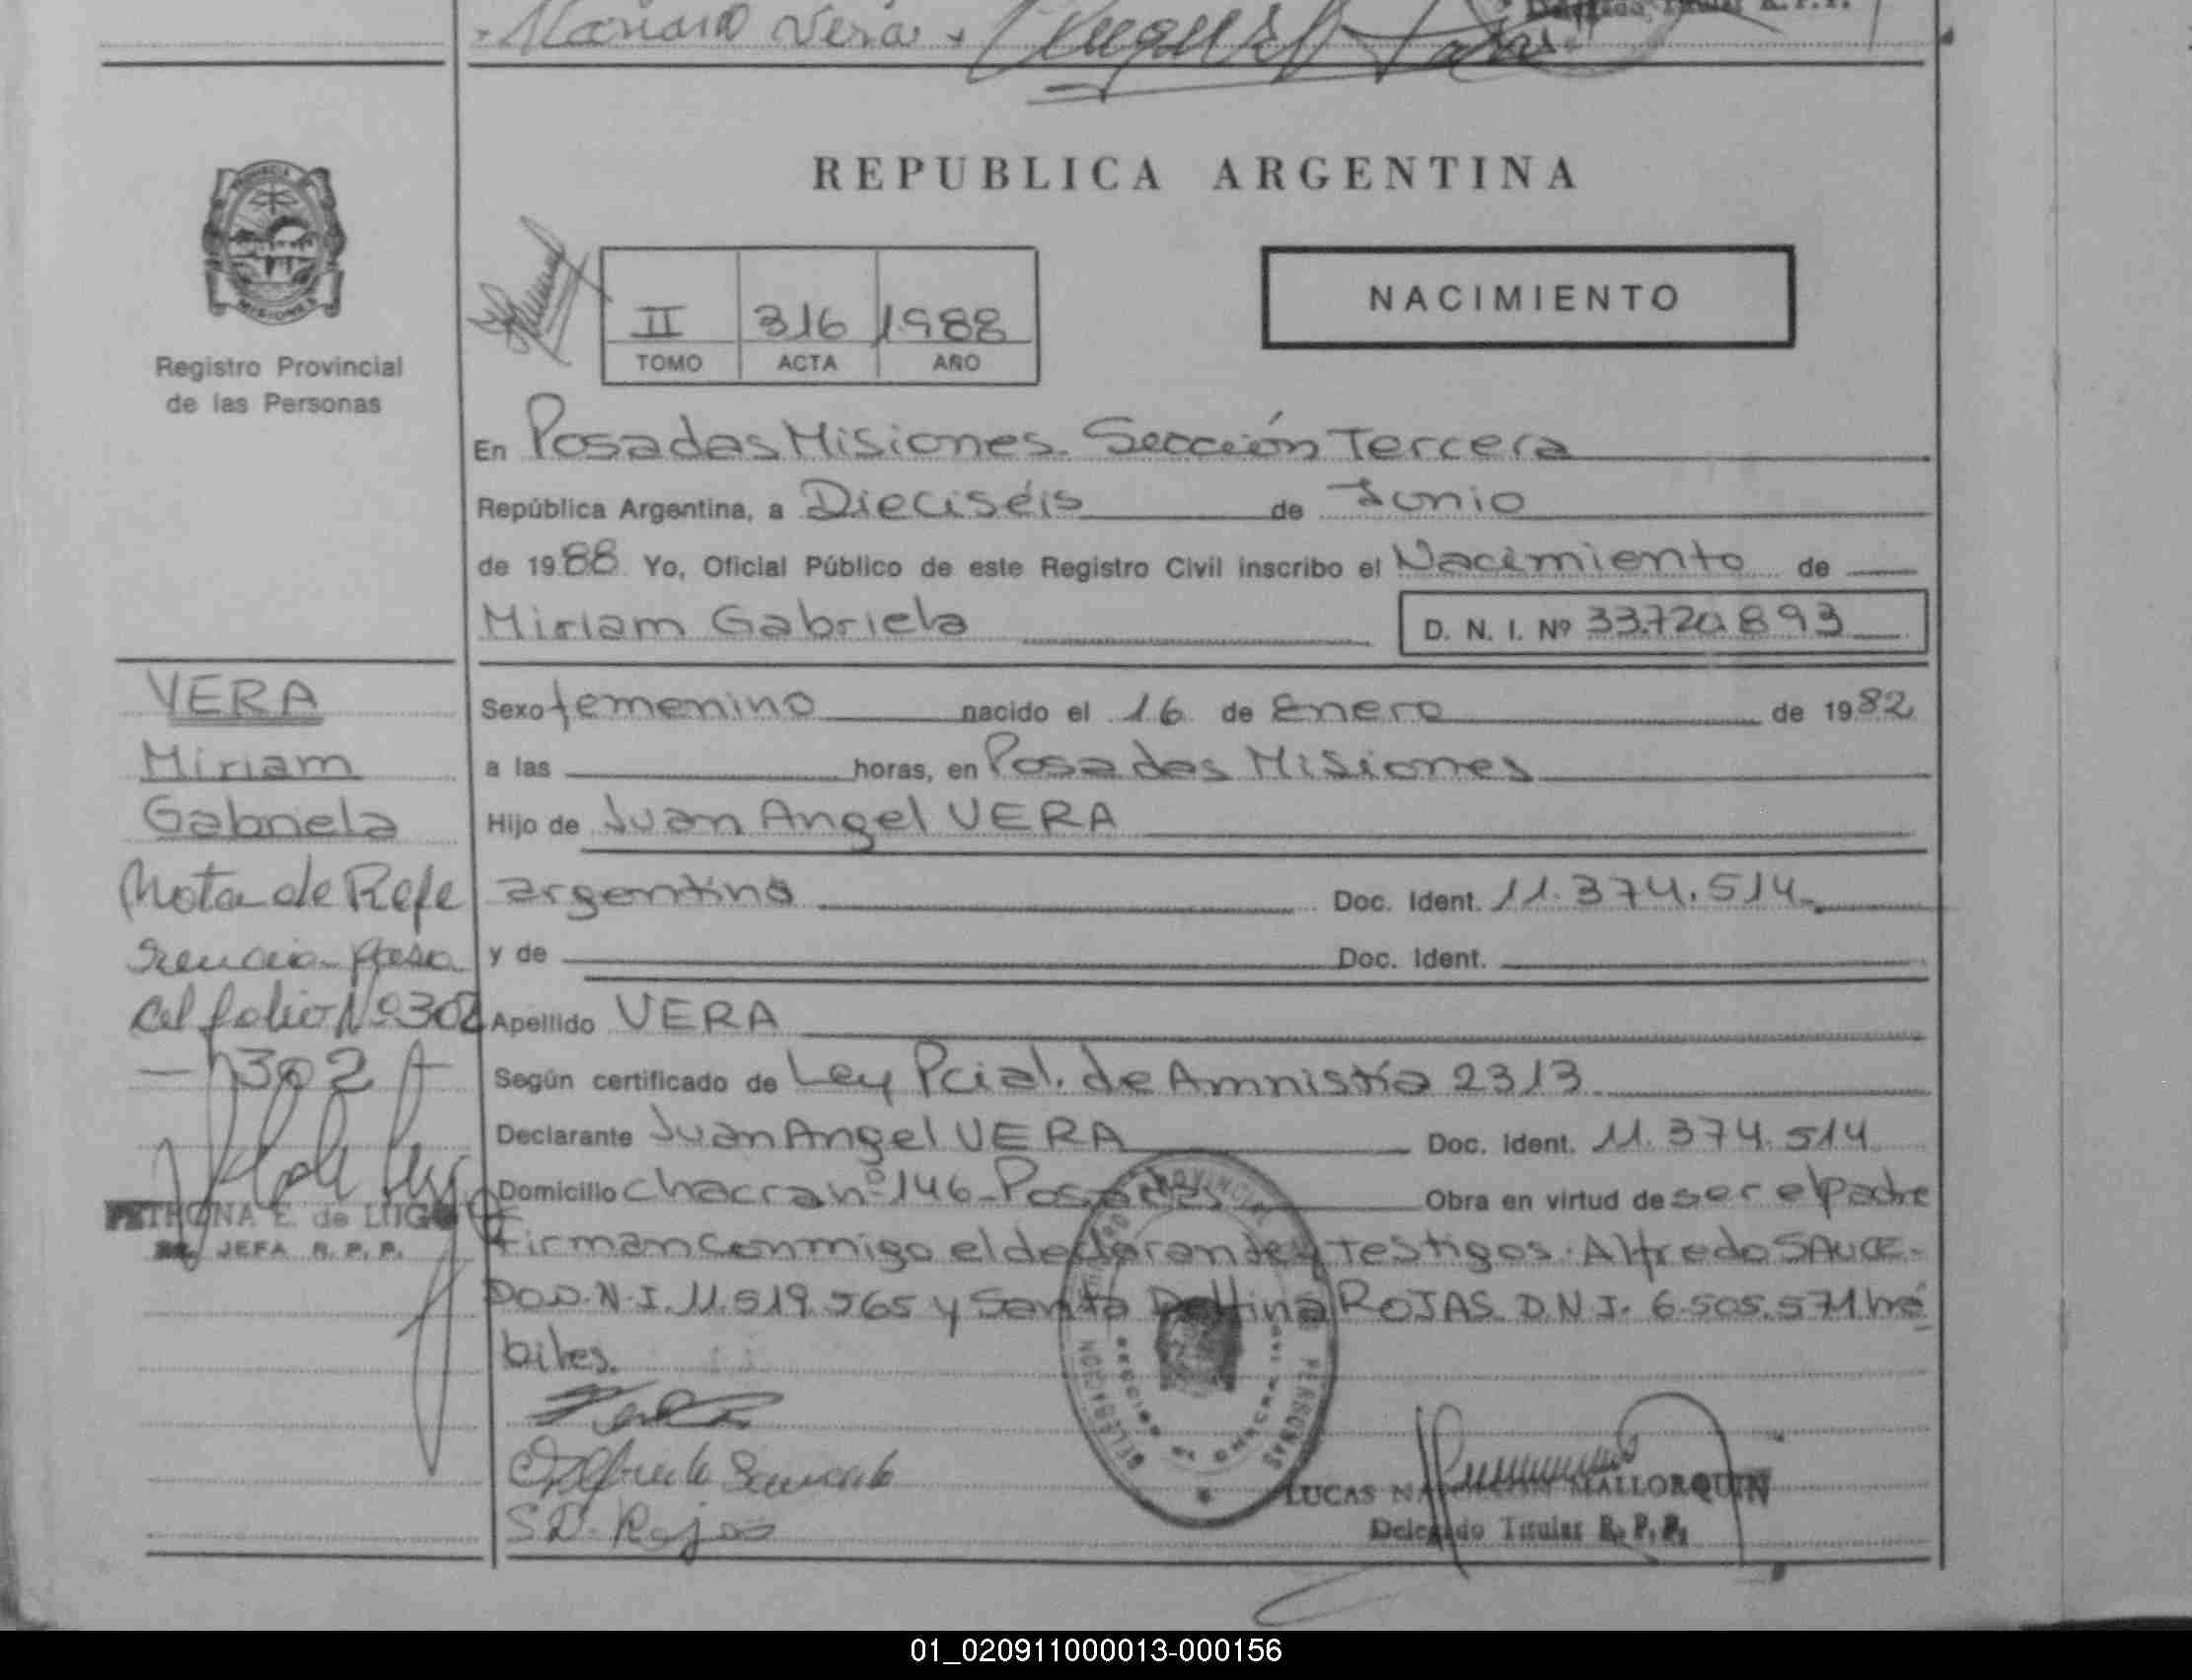 Mariano Vera
REPUBLICA ARGENTINA
PROVINCIA
MISIONES
Registro Provincial
de las Personas
II 316 1988
TOMO ACTA AÑO
NACIMIENTO
En Posadas Misiones. Sección Tercera
República Argentina, a Dieciséis de Junio
de 1988 Yo, Oficial Público de este Registro Civil inscribo el Nacimiento de
Miriam Gabriela D. N. I. Nº 33.720.893
VERA
Miriam
Gabriela
Nota de Refe
rencia pasa
al folio Nº 302
302
PETRONA E. de LUGO
JEFA R. P. P.
Sexo femenino nacido el 16 de Enero de 1982
a las horas, en Posadas Misiones
Hijo de Juan Angel VERA
argentino Doc. Ident. 11.374.514
y de Doc. Ident.
Apellido VERA
Según certificado de Ley Pcial. de Amnistía 2313
Declarante Juan Angel VERA Doc. Ident. 11.374.514
Domicilio Chacra nº 146 - Posadas Obra en virtud de ser el padre
Firman conmigo el declarante y testigos: Alfredo SAUCE-
DO D.N.I. 11.519.565 y Santa Delfina ROJAS D.N.I. 6.505.571 há
biles.
S D. Rojas
LUCAS NAPOLEON MALLORQUIN
Delegado Titular R. P. P.
01_020911000013-000156